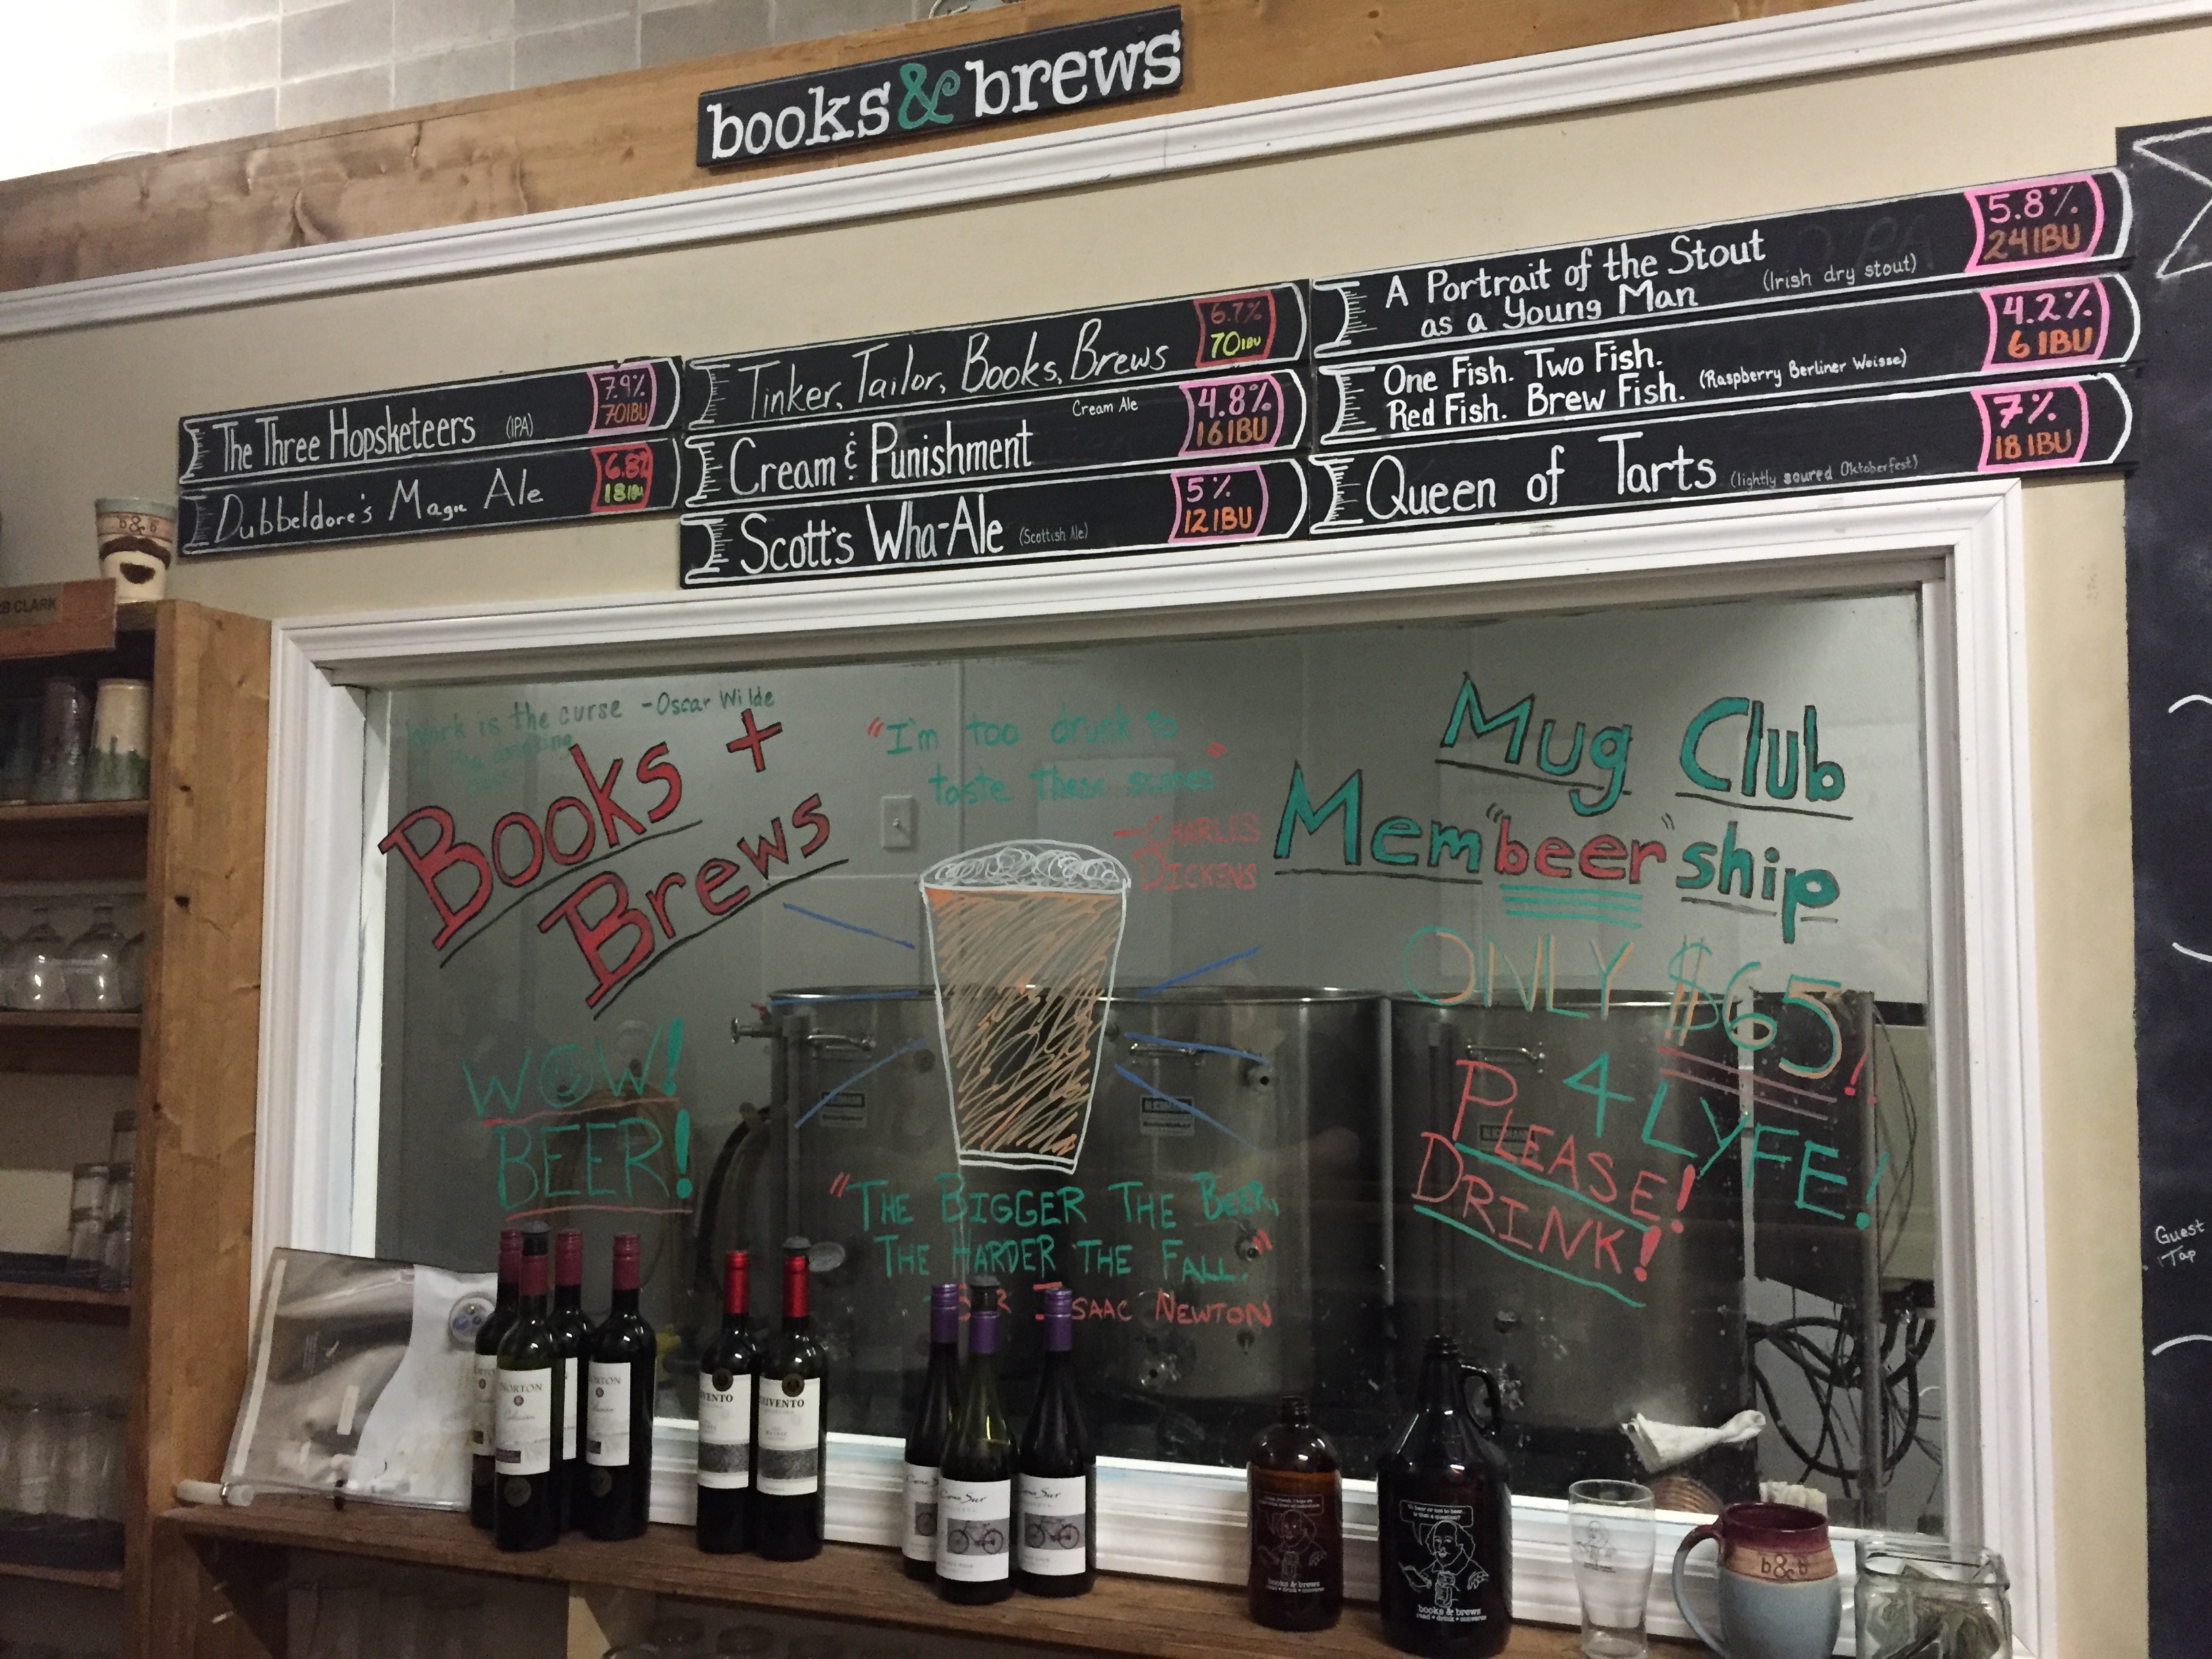 books & brews
The Three Hopsketeers (IPA)
7.9%
70IBU
Dubbeldore's Magic Ale
6.8%
18IBU
Tinker, Tailor, Books, Brews
6.7%
70IBU
Cream & Punishment
Cream Ale
4.8%
16IBU
Scott's Wha-Ale (Scottish Ale)
5%
12IBU
A Portrait of the Stout
as a Young Man
(Irish dry stout)
5.8%
24IBU
One Fish. Two Fish.
Red Fish. Brew Fish.
(Raspberry Berliner Weisse)
4.2%
6IBU
Queen of Tarts (lightly soured Oktoberfest)
7%
18IBU
b&b
CLARK
Work is the curse -Oscar Wilde
Books +
Brews
WOW!
BEER!
"I'm too drunk to
taste these scones"
-CHARLES
DICKENS
"THE BIGGER THE BEER,
THE HARDER THE FALL."
ISAAC NEWTON
Mug Club
Mem"beer"ship
ONLY $65!
4 LYFE!
PLEASE!
DRINK!
Guest
Tap
NORTON
NORTON
Cono Sur
books & brews
read • drink • converse
books & brews
read • drink • converse
b&b